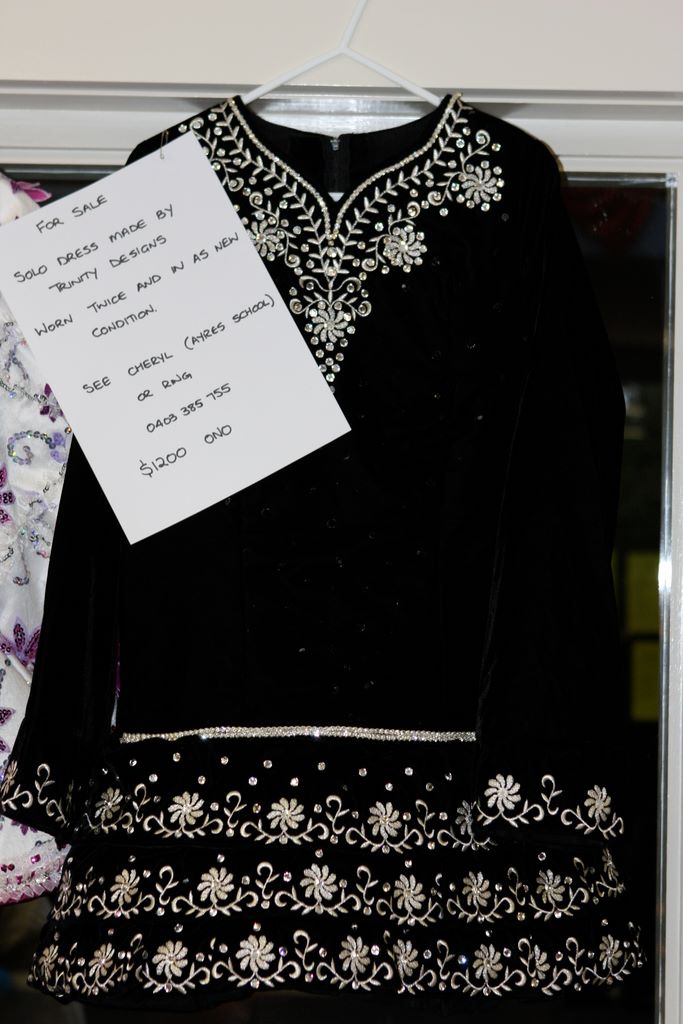 FOR SALE
SOLO DRESS MADE BY
TRINITY DESIGNS
WORN TWICE AND IN AS NEW
CONDITION.
SEE CHERYL (AYRES SCHOOL)
OR RING
0403 385 755
$1200 ONO